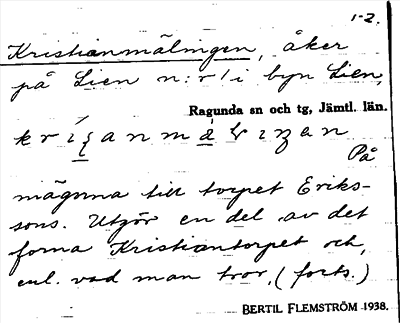 1-2.
Kristianmälningen, åker
på Lien n:r 1 i byn Lien,
Ragunda sn och tg, Jämtl. län.
På
mägorna till torpet Eriks-
sons. Utgör en del av det
forna Kristiantorpet och,
enl. vad man tror, (forts.)
BERTIL FLEMSTRÖM 1938.